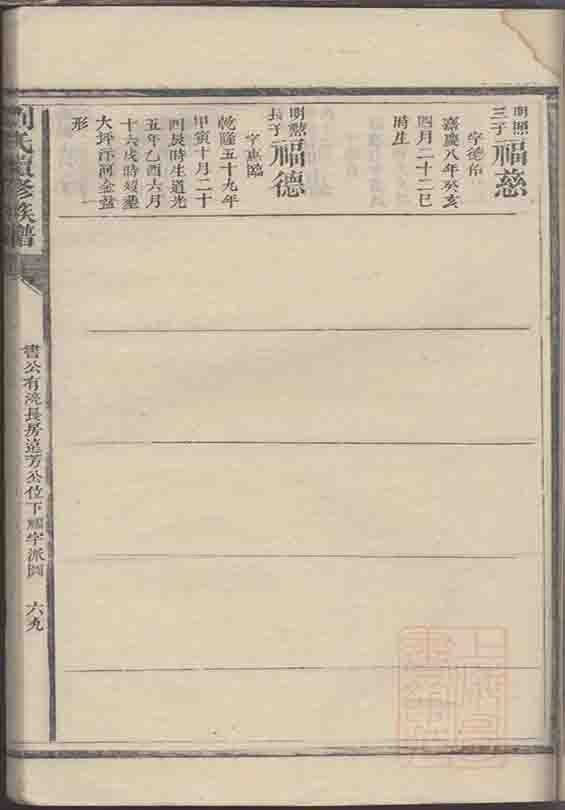 明照
三子
福慈
字德佑
嘉慶八年癸亥
四月二十二巳
時生
明
長子
福德
字
乾隆五十九年
甲寅十月二十
四辰時生道光
五年乙酉六月
十六戌時歿塟
大坪汴河金盆
形
劉氏續修族譜
書公有
長房遠芳公位下福字派圖
六九
上